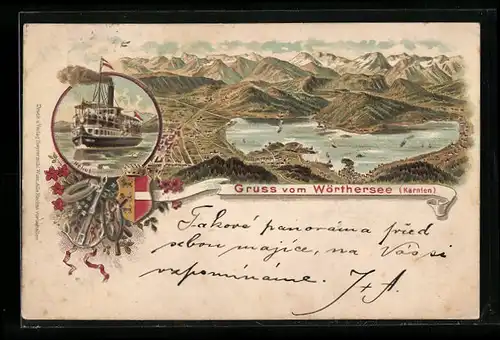 Gruss vom Wörthersee (Kärnten)
Takové panoráma před
sebou majíce, na Vás si
vzpomínáme.
J + A.